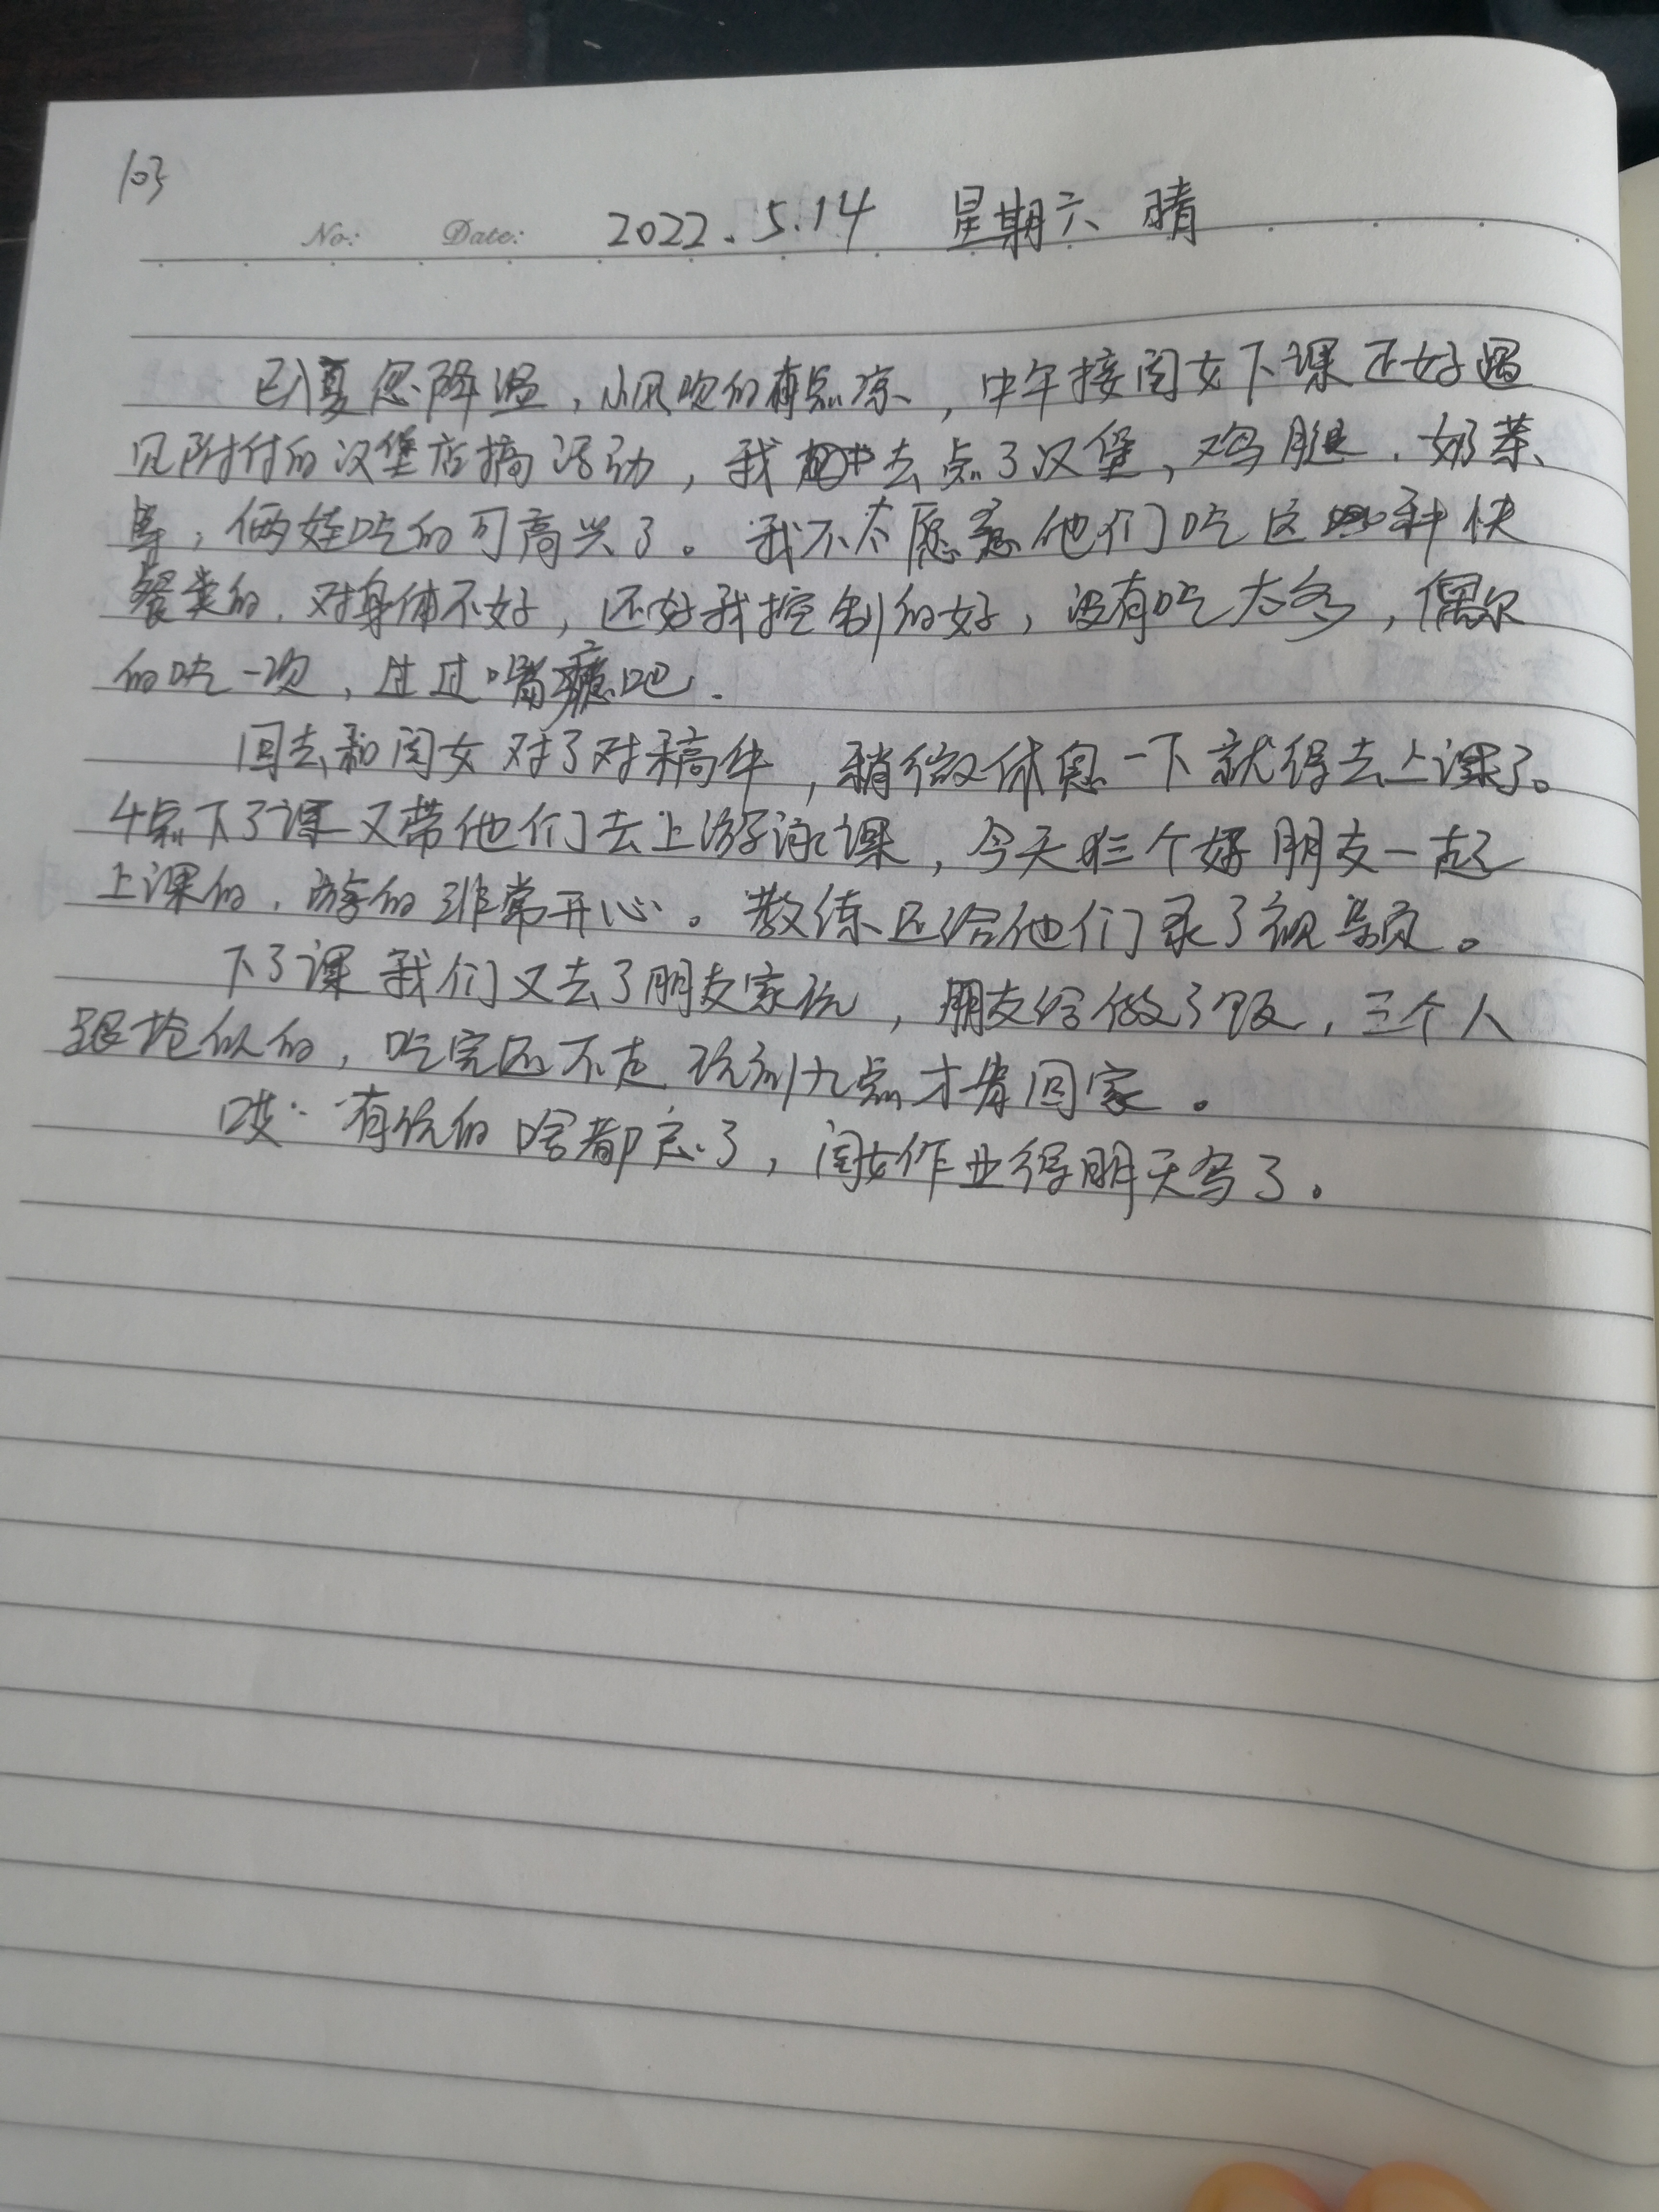 103
No: Date: 2022.5.14 星期六 晴
已夏忽降温，小风吹的有点凉，中午接闺女下课正好遇
见附付的汉堡店搞活动，我去点了汉堡，鸡腿，奶茶
等，俩娃吃的可高兴了。我不太愿意他们吃这种快
餐类的，对身体不好，还好我控制的好，没有吃太多，偶尔
的吃一次，过过嘴瘾吧.
回去和闺女对了对稿件，稍微休息一下就得去上课了。
4点下了课又带他们去上游泳课，今天三个好朋友一起
上课的，游的非常开心。教练还给他们录了视频。
下了课我们又去了朋友家玩，朋友给做了饭，三个人
跟抢似的，吃完还不走玩到九点才肯回家。
哎··有玩的啥都忘了，闺女作业得明天写了。